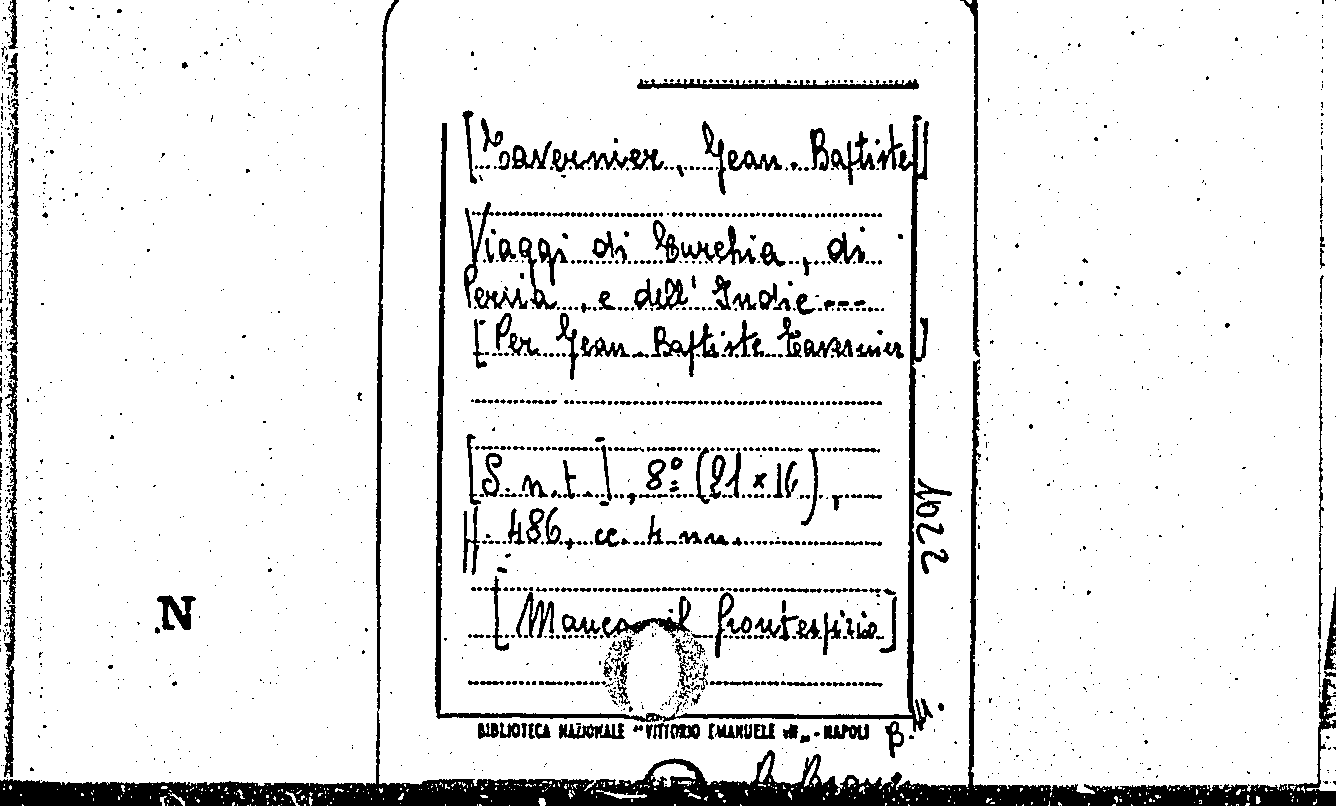 [Tavernier, Jean-Baptiste]
Viaggi di Turchia, di
Persia, e dell' Indie ---
[Per Jean-Baptiste Tavernier]
[S. n. t.], 8º (21 x 16),
pp. 486, cc. 4 nn.
[Manca il frontespizio]
BIBLIOTECA NAZIONALE "VITTORIO EMANUELE III" - NAPOLI
B.
N